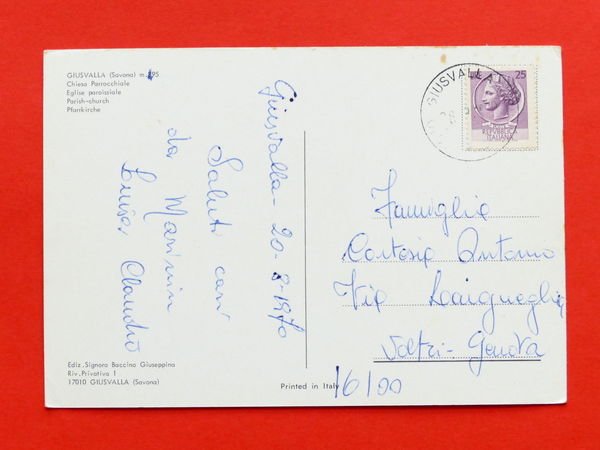 GIUSVALLA (Savona) m.
Chiesa Parrocchiale
Eglise paroissiale
Parish-church
Pfarrkirche
Giusvalla - 20-8-1970
Saluti cari
da
Luisa, Claudio
GIUSVALLA
25
REPUBBLICA
ITALIANA
Famiglia
Antonio
Via Laigueglia
Voltri - Genova
16100
Ediz. Signora Baccino Giuseppina
Riv. Privativa 1
17010 GIUSVALLA (Savona)
Printed in Italy